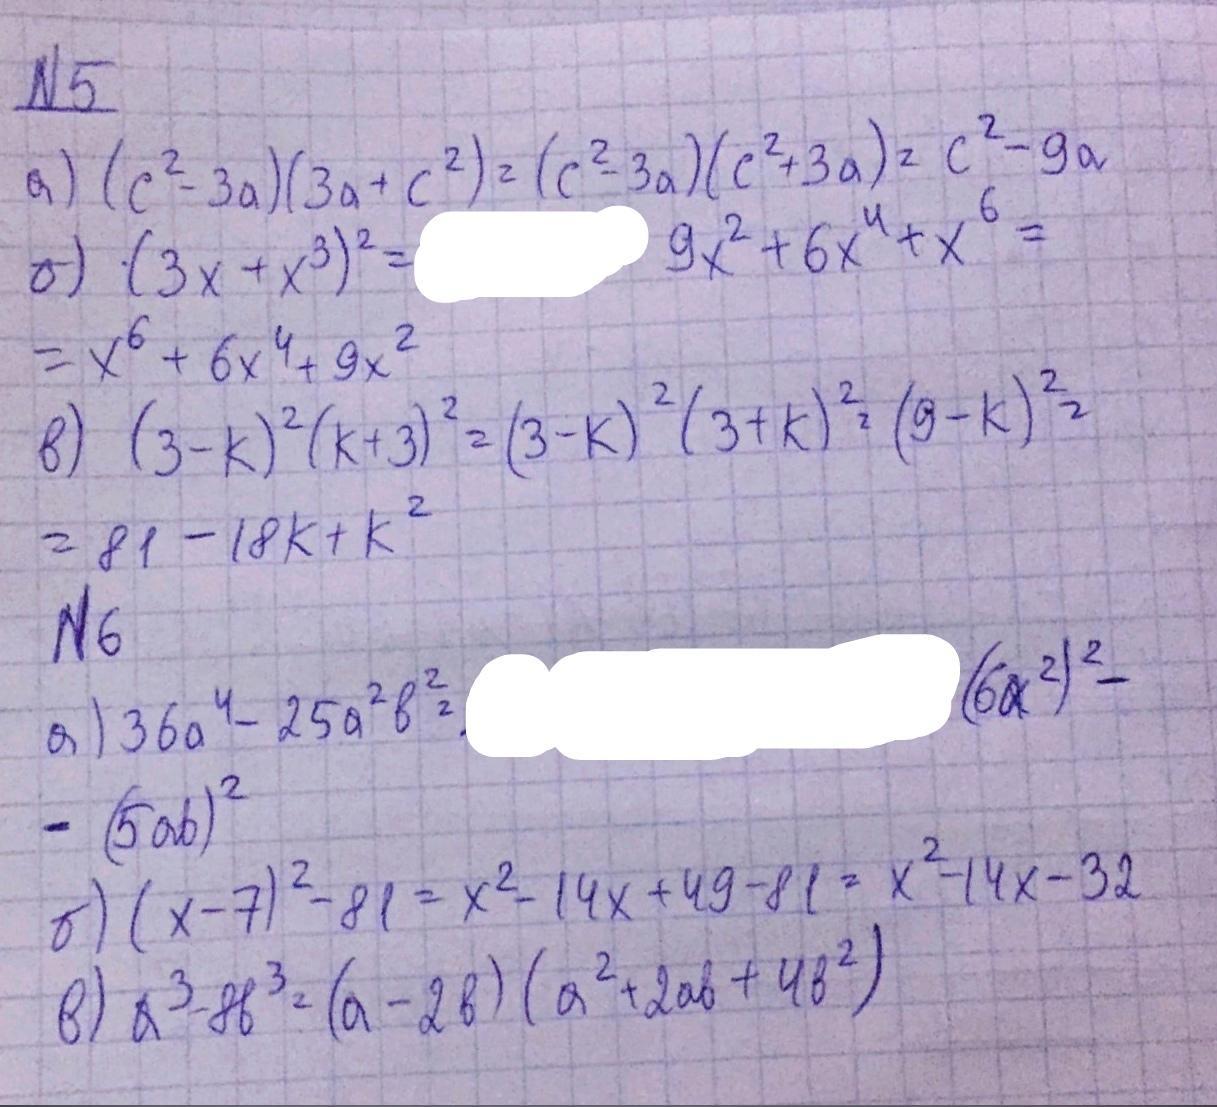 N5
а) (c²-3a)(3a+c²)=(c²-3a)(c²+3a)= c²-9a
б) (3x+x³)²= 9x²+6x⁴+x⁶=
= x⁶ + 6x⁴ + 9x²
в) (3-k)²(k+3)²=(3-k)²(3+k)²=(9-k)²=
= 81 - 18k + k²
N6
а) 36a⁴ - 25a²b²= (6a²)² -
- (5ab)²
б) (x-7)²-81 = x²-14x+49-81 = x²-14x-32
в) a³-8b³=(a-2b)(a²+2ab+4b²)